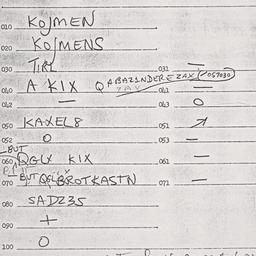 010 KOJMEN
020 KOJMENS
030 TIRL 031 —
040 A KIX Q ABAZINDEREZAX 057030 041 —
ZAX
042 — 043 O
050 KAXEL8 051
052 O 053 —
—BUT
060 QGLX KIX 061 —
070 —BUT BROTKASTN 071 —
080 SADZ35
090 +
100 O